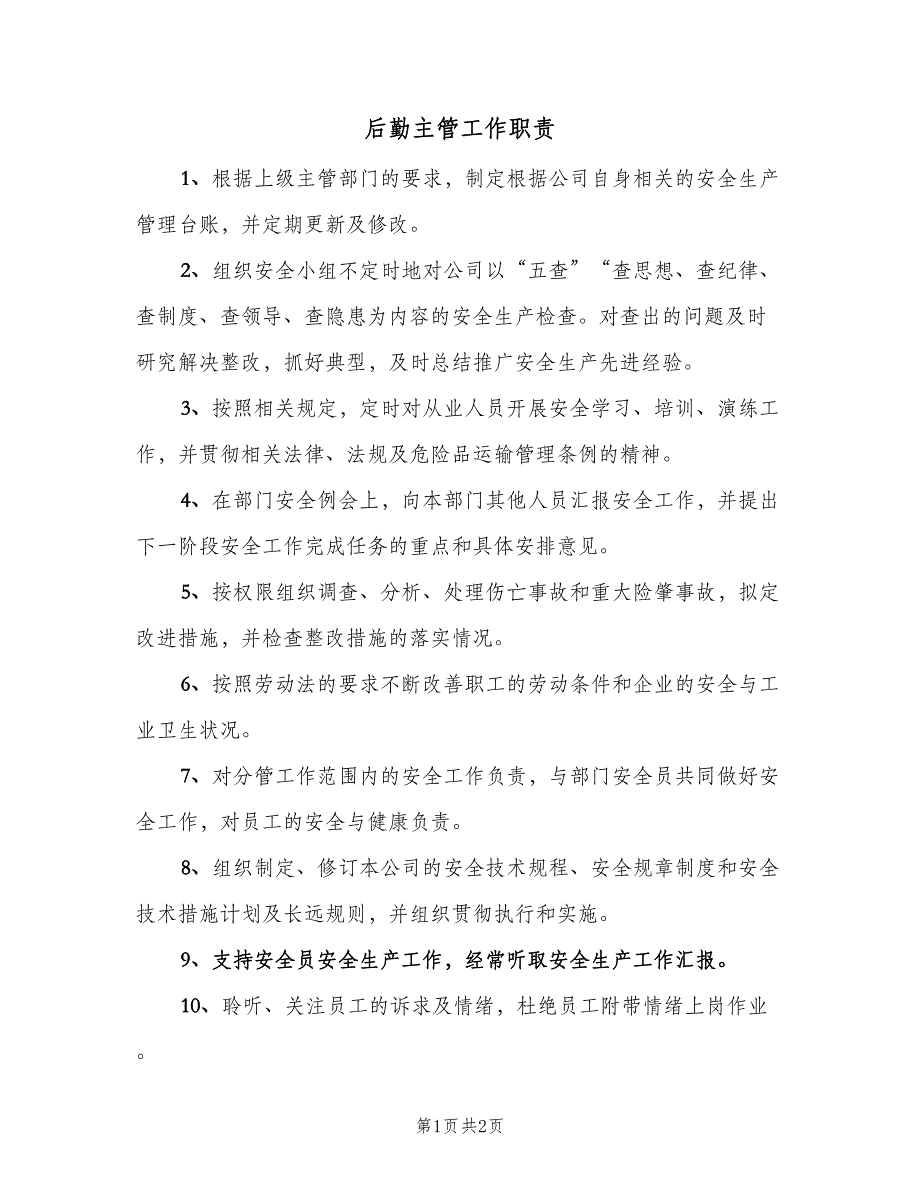 后勤主管工作职责
1、根据上级主管部门的要求，制定根据公司自身相关的安全生产
管理台账，并定期更新及修改。
2、组织安全小组不定时地对公司以“五查”“查思想、查纪律、
查制度、查领导、查隐患为内容的安全生产检查。对查出的问题及时
研究解决整改，抓好典型，及时总结推广安全生产先进经验。
3、按照相关规定，定时对从业人员开展安全学习、培训、演练工
作，并贯彻相关法律、法规及危险品运输管理条例的精神。
4、在部门安全例会上，向本部门其他人员汇报安全工作，并提出
下一阶段安全工作完成任务的重点和具体安排意见。
5、按权限组织调查、分析、处理伤亡事故和重大险肇事故，拟定
改进措施，并检查整改措施的落实情况。
6、按照劳动法的要求不断改善职工的劳动条件和企业的安全与工
业卫生状况。
7、对分管工作范围内的安全工作负责，与部门安全员共同做好安
全工作，对员工的安全与健康负责。
8、组织制定、修订本公司的安全技术规程、安全规章制度和安全
技术措施计划及长远规则，并组织贯彻执行和实施。
9、支持安全员安全生产工作，经常听取安全生产工作汇报。
10、聆听、关注员工的诉求及情绪，杜绝员工附带情绪上岗作业
。
第1页共2页